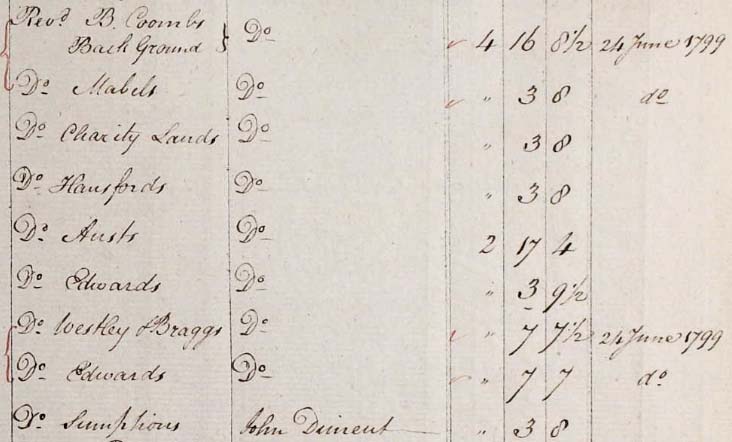 Revd B. Coombs
Back Ground } Do ✓ 4 16 8½ 24 June 1799
Do Mabels Do ✓ " 3 8 do
Do Charity Lands Do " 3 8
Do Hansfords Do " 3 8
Do Austs Do 2 17 4
Do Edwards Do " 3 9½
Do Westley & Braggs Do ✓ " 7 7½ 24 June 1799
Do Edwards Do ✓ " 7 7 do
Do Sumptions John Diment " 3 8